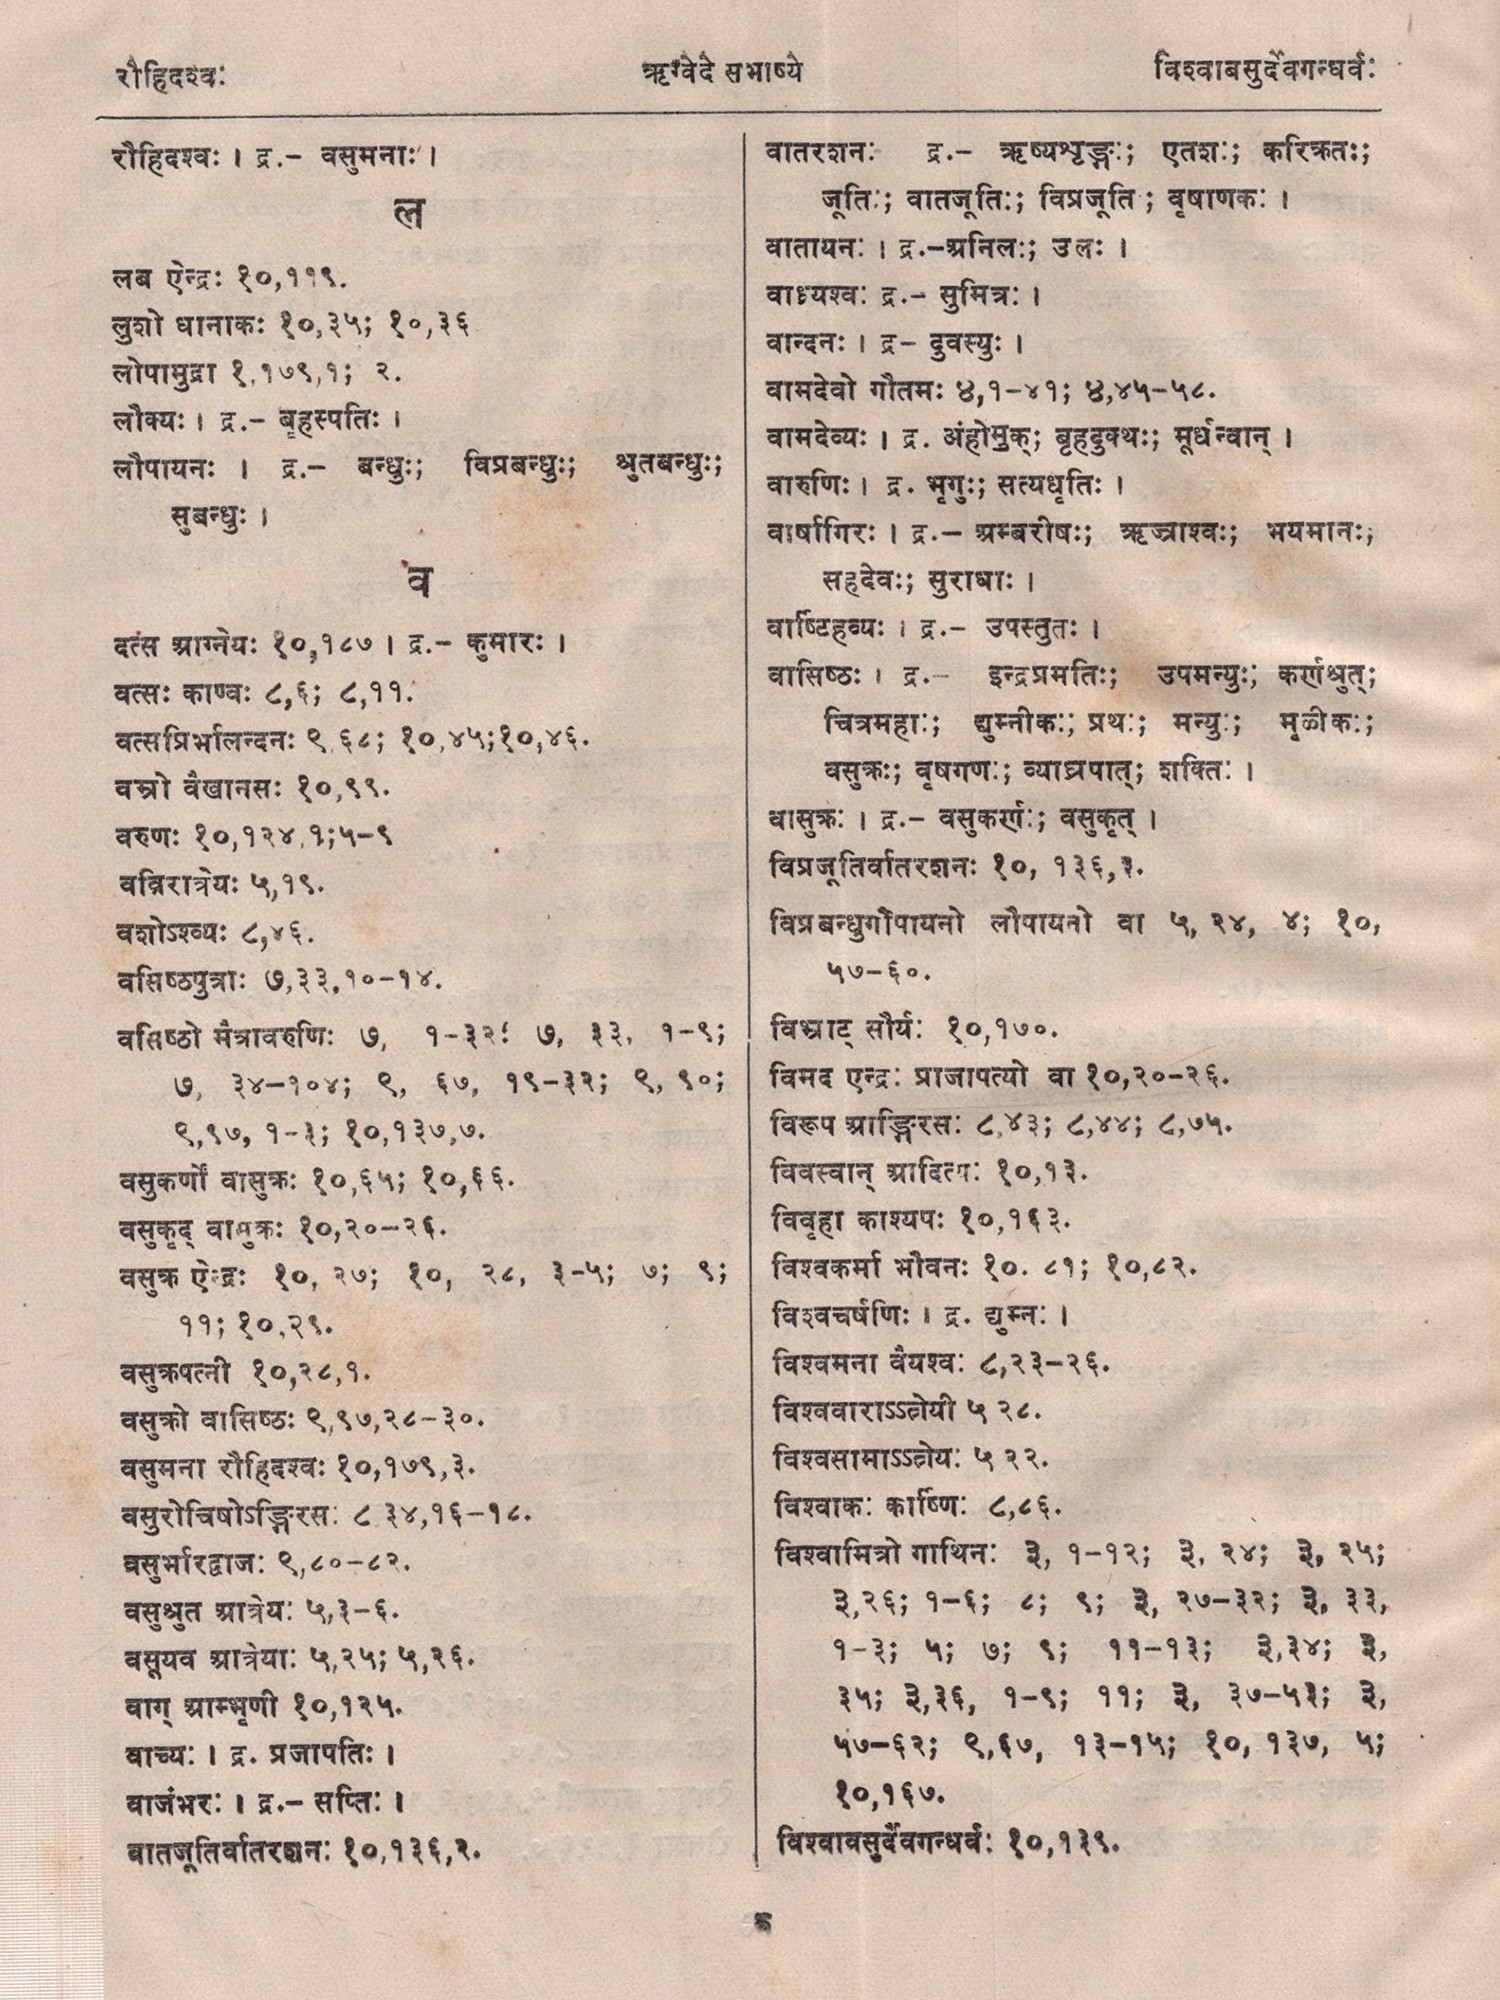 रौहिदश्वः
ऋग्वेदे सभाष्ये
विश्वाबसुर्देवगन्धर्वः
रौहिदश्वः । द्र.– वसुमनाः ।
ल
लब ऐन्द्रः १०,११९.
लुशो धानाकः १०,३५; १०,३६
लोपामुद्रा १,१७९,१; २.
लौक्यः । द्र.– बृहस्पतिः ।
लौपायनः । द्र.– बन्धुः; विप्रबन्धुः; श्रुतबन्धुः;
सुबन्धुः ।
व
वत्स आग्नेयः १०,१८७ । द्र.– कुमारः ।
वत्सः काण्वः ८,६; ८,११.
वत्सप्रिर्भालन्दनः ९,६८; १०,४५;१०,४६.
वम्रो वैखानसः १०,९९.
वरुणः १०,१२४,१;५–९
वव्रिरात्रेयः ५,१९.
वशोऽश्व्यः ८,४६.
वसिष्ठपुत्राः ७,३३,१०–१४.
वसिष्ठो मैत्रावरुणिः ७, १–३२; ७, ३३, १–९;
७, ३४–१०४; ९, ६७, १९–३२; ९, ९०;
९,९७, १–३; १०,१३७,७.
वसुकर्णो वासुक्रः १०,६५; १०,६६.
वसुकृद् वासुक्रः १०,२०–२६.
वसुक्र ऐन्द्रः १०, २७; १०, २८, ३–५; ७; ९;
११; १०,२९.
वसुक्रपत्नी १०,२८,१.
वसुक्रो वासिष्ठः ९,९७,२८–३०.
वसुमना रौहिदश्वः १०,१७९,३.
वसुरोचिषोऽङ्गिरसः ८ ३४,१६–१८.
वसुर्भारद्वाजः ९,८०–८२.
वसुश्रुत आत्रेयः ५,३–६.
वसूयव आत्रेयाः ५,२५; ५,२६.
वाग् आम्भृणी १०,१२५.
वाच्यः । द्र. प्रजापतिः ।
वाजंभरः । द्र.– सप्तिः ।
वातजूतिर्वातरशनः १०,१३६,२.
वातरशनः द्र.– ऋष्यशृङ्गः; एतशः; करिक्रतः;
जूतिः; वातजूतिः; विप्रजूति ; वृषाणकः ।
वातायनः । द्र.–अनिलः; उलः ।
वाध्र्यश्वः द्र.– सुमित्रः ।
वान्दनः । द्र– दुवस्युः ।
वामदेवो गौतमः ४,१–४१; ४,४५–५८.
वामदेव्यः । द्र. अंहोमुक्; बृहदुक्थः; मूर्धन्वान् ।
वारुणिः । द्र. भृगुः; सत्यधृतिः ।
वार्षागिरः । द्र.– अम्बरीषः; ऋज्राश्वः; भयमानः;
सहदेवः; सुराधाः ।
वार्ष्टिहव्यः । द्र.– उपस्तुतः ।
वासिष्ठः । द्र.– इन्द्रप्रमतिः; उपमन्युः; कर्णश्रुत्;
चित्रमहाः; द्युम्नीकः; प्रथः; मन्युः; मृळीकः;
वसुक्रः; वृषगणः; व्याघ्रपात्; शक्तिः ।
वासुक्रः । द्र.– वसुकर्णः; वसुकृत् ।
विप्रजूतिर्वातरशनः १०, १३६,३.
विप्रबन्धुर्गौपायनो लौपायनो वा ५, २४, ४; १०,
५७–६०.
विभ्राट् सौर्यः १०,१७०.
विमद एन्द्रः प्राजापत्यो वा १०,२०–२६.
विरूप आङ्गिरसः ८,४३; ८,४४; ८,७५.
विवस्वान् आदित्यः १०,१३.
विवृहा काश्यपः १०,१६३.
विश्वकर्मा भौवनः १०. ८१; १०,८२.
विश्वचर्षणिः । द्र. द्युम्नः ।
विश्वमना वैयश्वः ८,२३–२६.
विश्ववाराऽऽत्रेयी ५ २८.
विश्वसामाऽऽत्रेयः ५ २२.
विश्वाकः कार्ष्णिः ८,८६.
विश्वामित्रो गाथिनः ३, १–१२; ३, २४; ३, २५;
३,२६; १–६; ८; ९; ३, २७–३२; ३, ३३,
१–३; ५; ७; ९; ११–१३; ३,३४; ३,
३५; ३,३६, १–९; ११; ३, ३७–५३; ३,
५७–६२; ९,६७, १३–१५; १०, १३७, ५;
१०,१६७.
विश्वावसुर्देवगन्धर्वः १०,१३९.